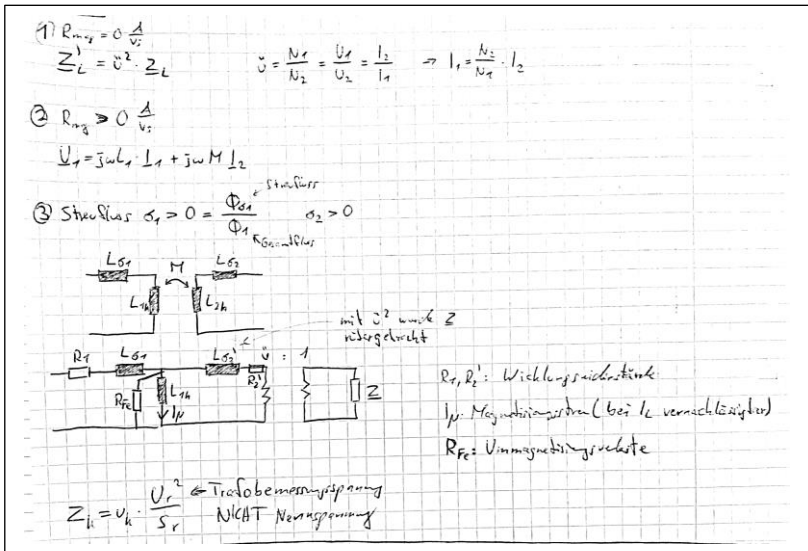 1) R_mag = 0 A/Vs
Z_L' = ü² · Z_L    ü = N1/N2 = U1/U2 = I2/I1 → I1 = N2/N1 · I2
② R_mg > 0 A/Vs
U1 = jωL1 · I1 + jωM I2
Streufluss
③ Streufluss σ1 > 0 = Φσ1/Φ1    σ2 > 0
Gesamtfluss
Lσ1 M Lσ2
L1h L2h
mit ü² wurde Z
R1 Lσ1 Lσ2' ü : 1
R_Fe L1h Iμ R2' Z
R1, R2': Wicklungswiderstände
Iμ: Magnetisierungsstrom (bei Ik vernachlässigbar)
R_Fe: Ummagnetisierungsverluste
Z_k = u_k · U_r²/S_r ← Trafobemessungsspannung
NICHT Nennspannung